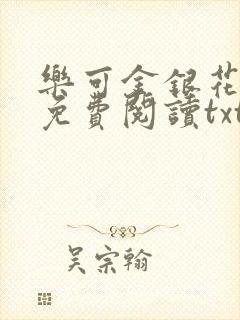 樂可金銀花
免費閱讀txt
吴宗翰